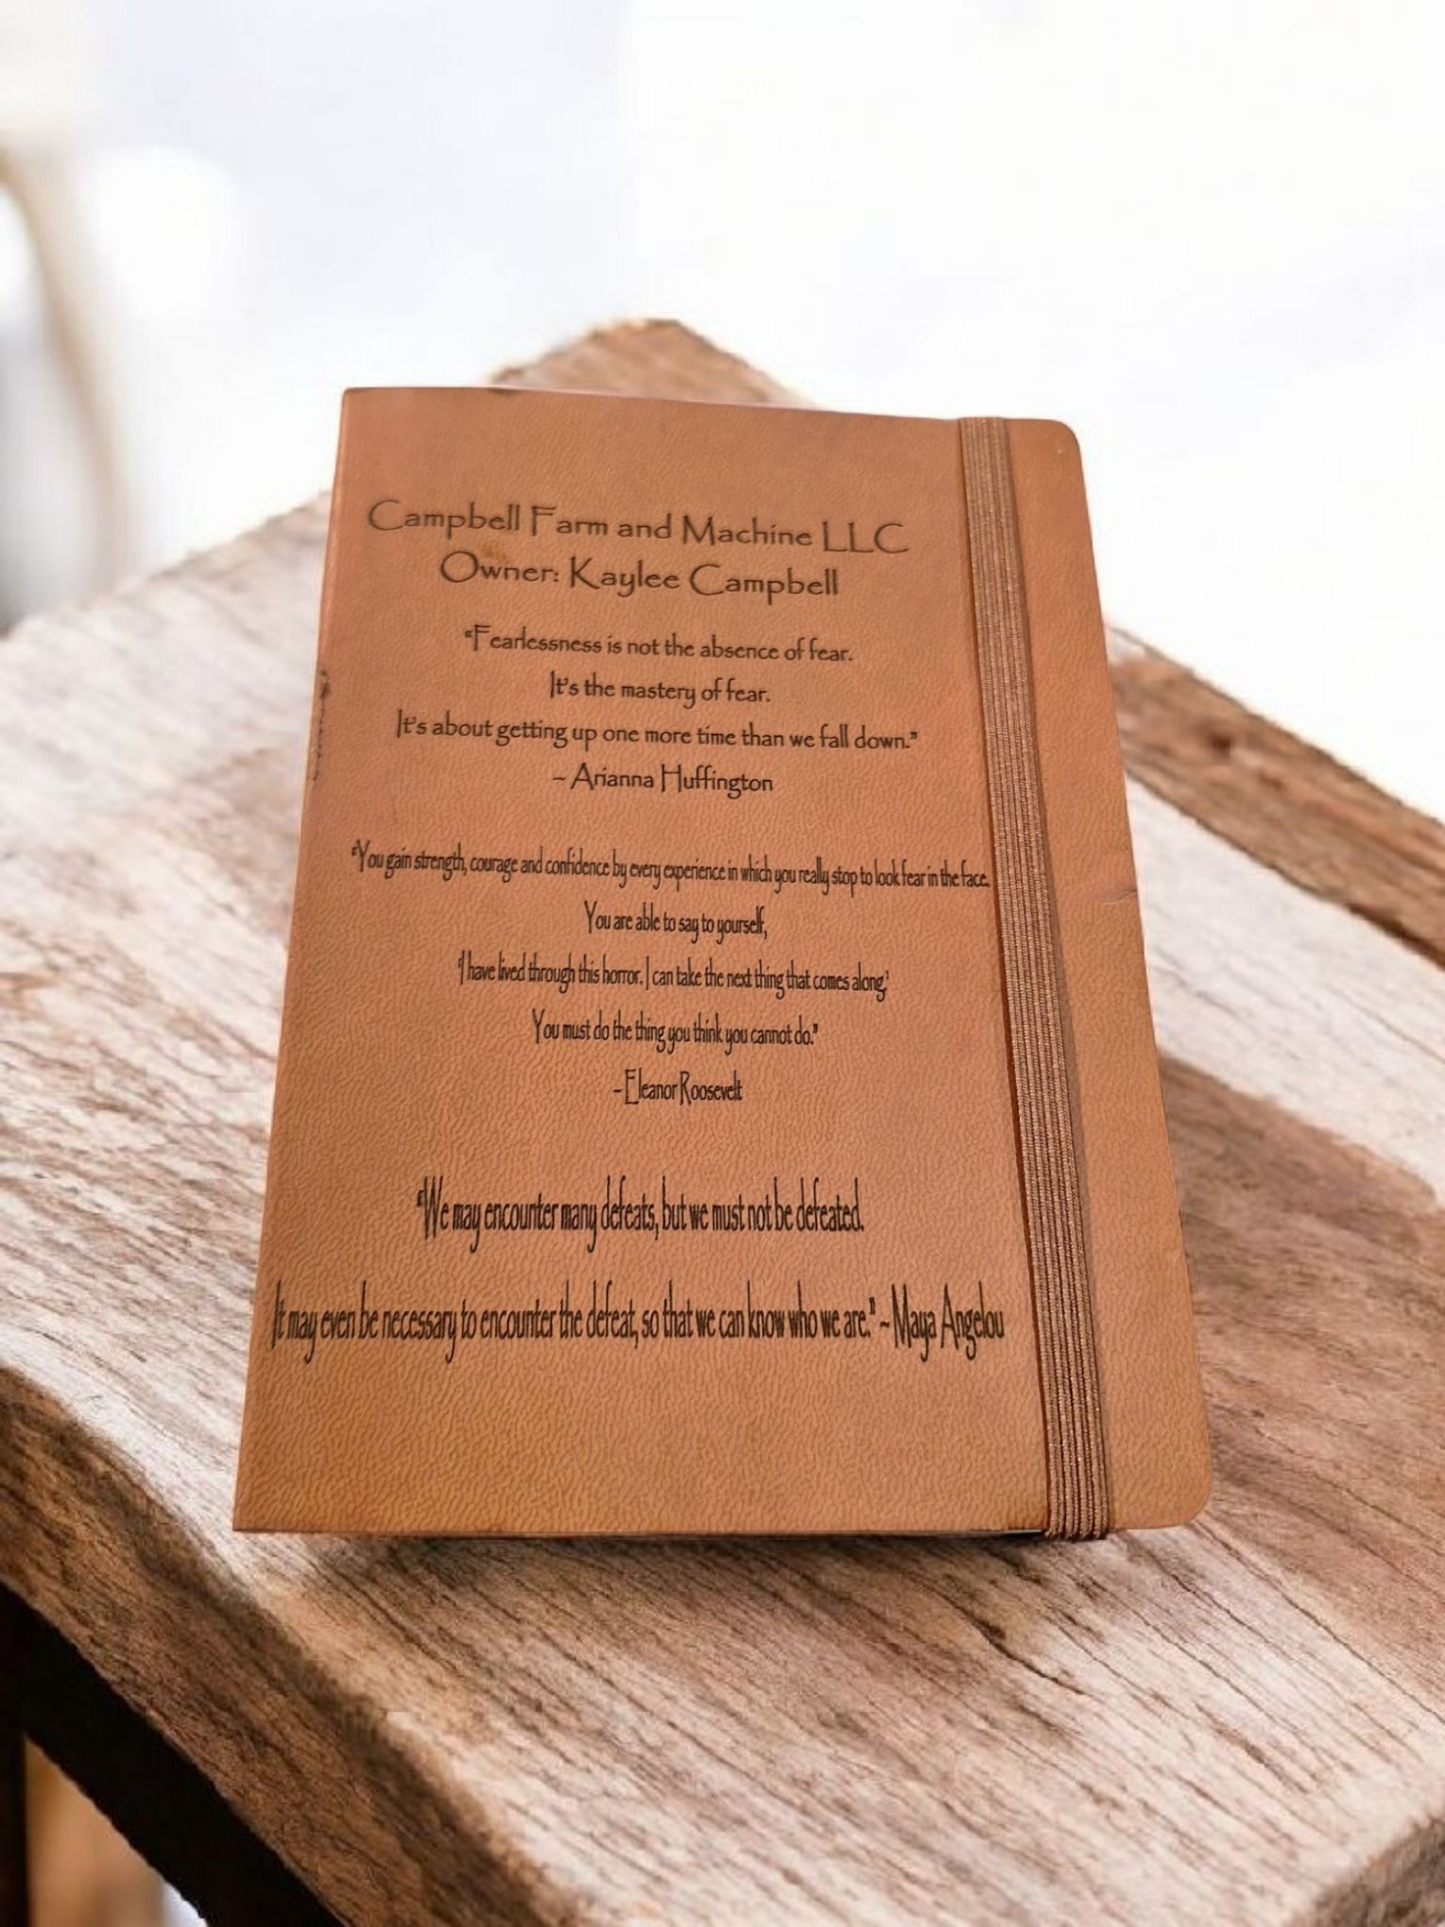 Campbell Farm and Machine LLC
Owner: Kaylee Campbell
"Fearlessness is not the absence of fear.
It's the mastery of fear.
It's about getting up one more time than we fall down."
~ Arianna Huffington
"You gain strength, courage and confidence by every experience in which you really stop to look fear in the face.
You are able to say to yourself,
'I have lived through this horror. I can take the next thing that comes along.'
You must do the thing you think you cannot do."
~ Eleanor Roosevelt
"We may encounter many defeats, but we must not be defeated.
It may even be necessary to encounter the defeat, so that we can know who we are." ~ Maya Angelou